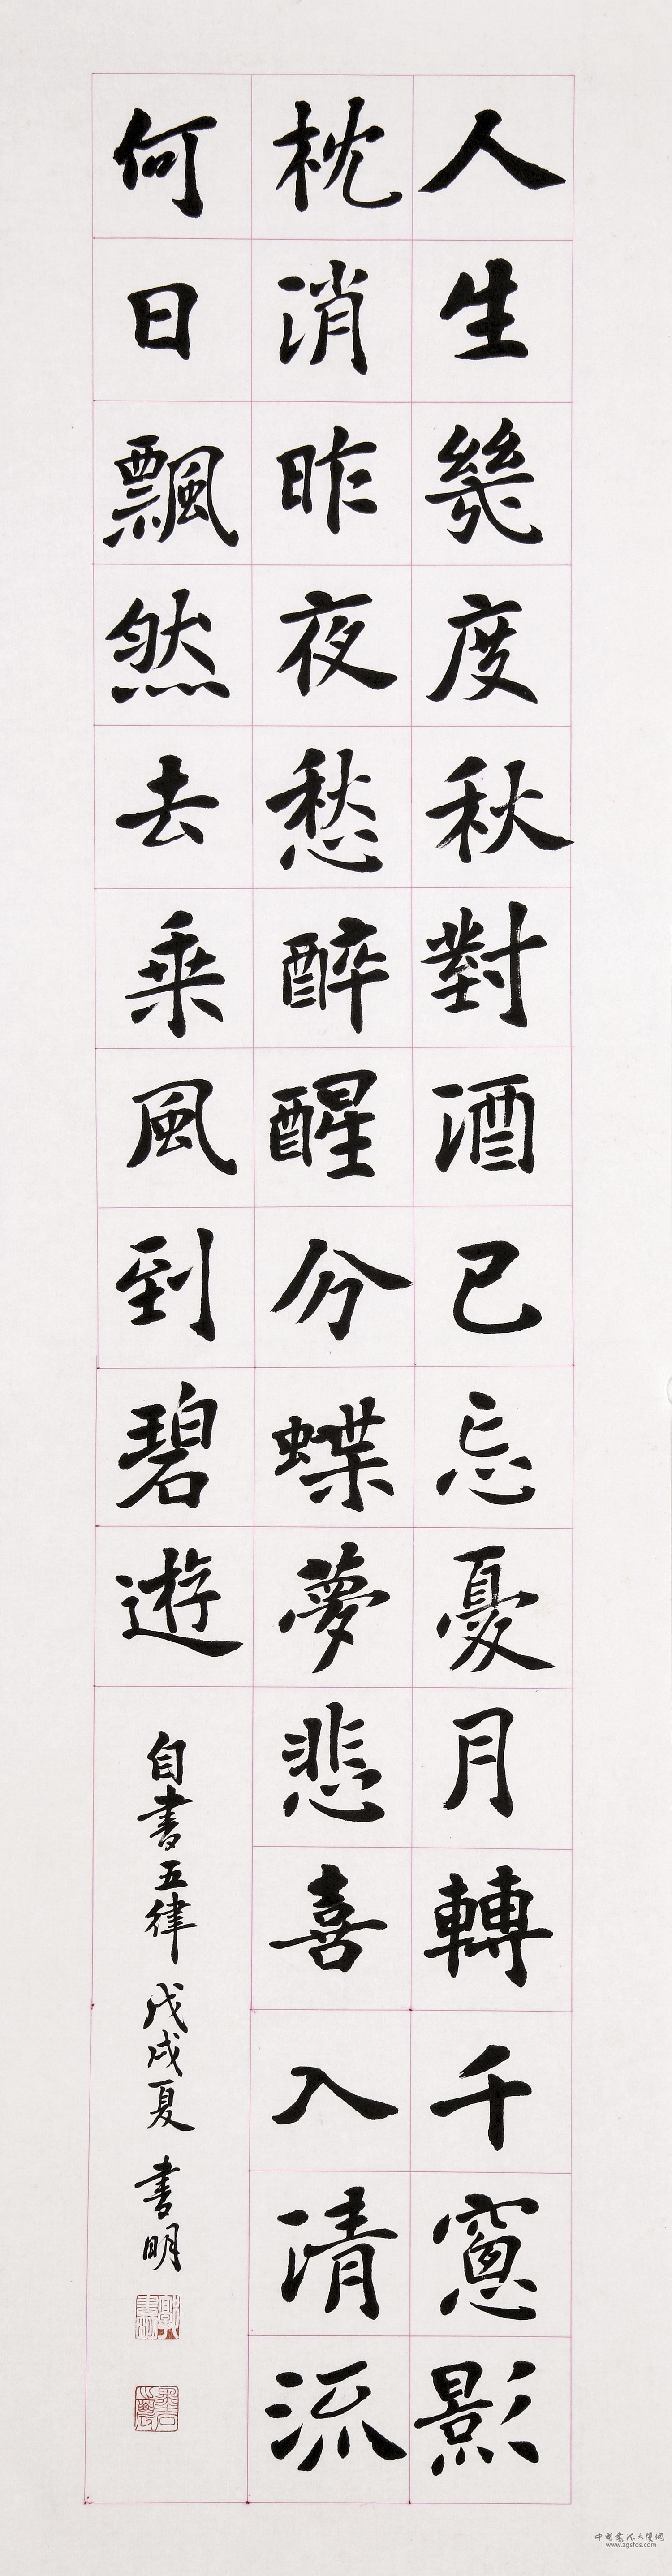 人生幾度秋對酒已忘憂月轉千窻影
枕消昨夜愁醉醒分蝶夢悲喜入清流
何日飄然去乘風到碧遊
自書五律 戊戌夏 書明
中國書法人質網
www.zgsfds.com